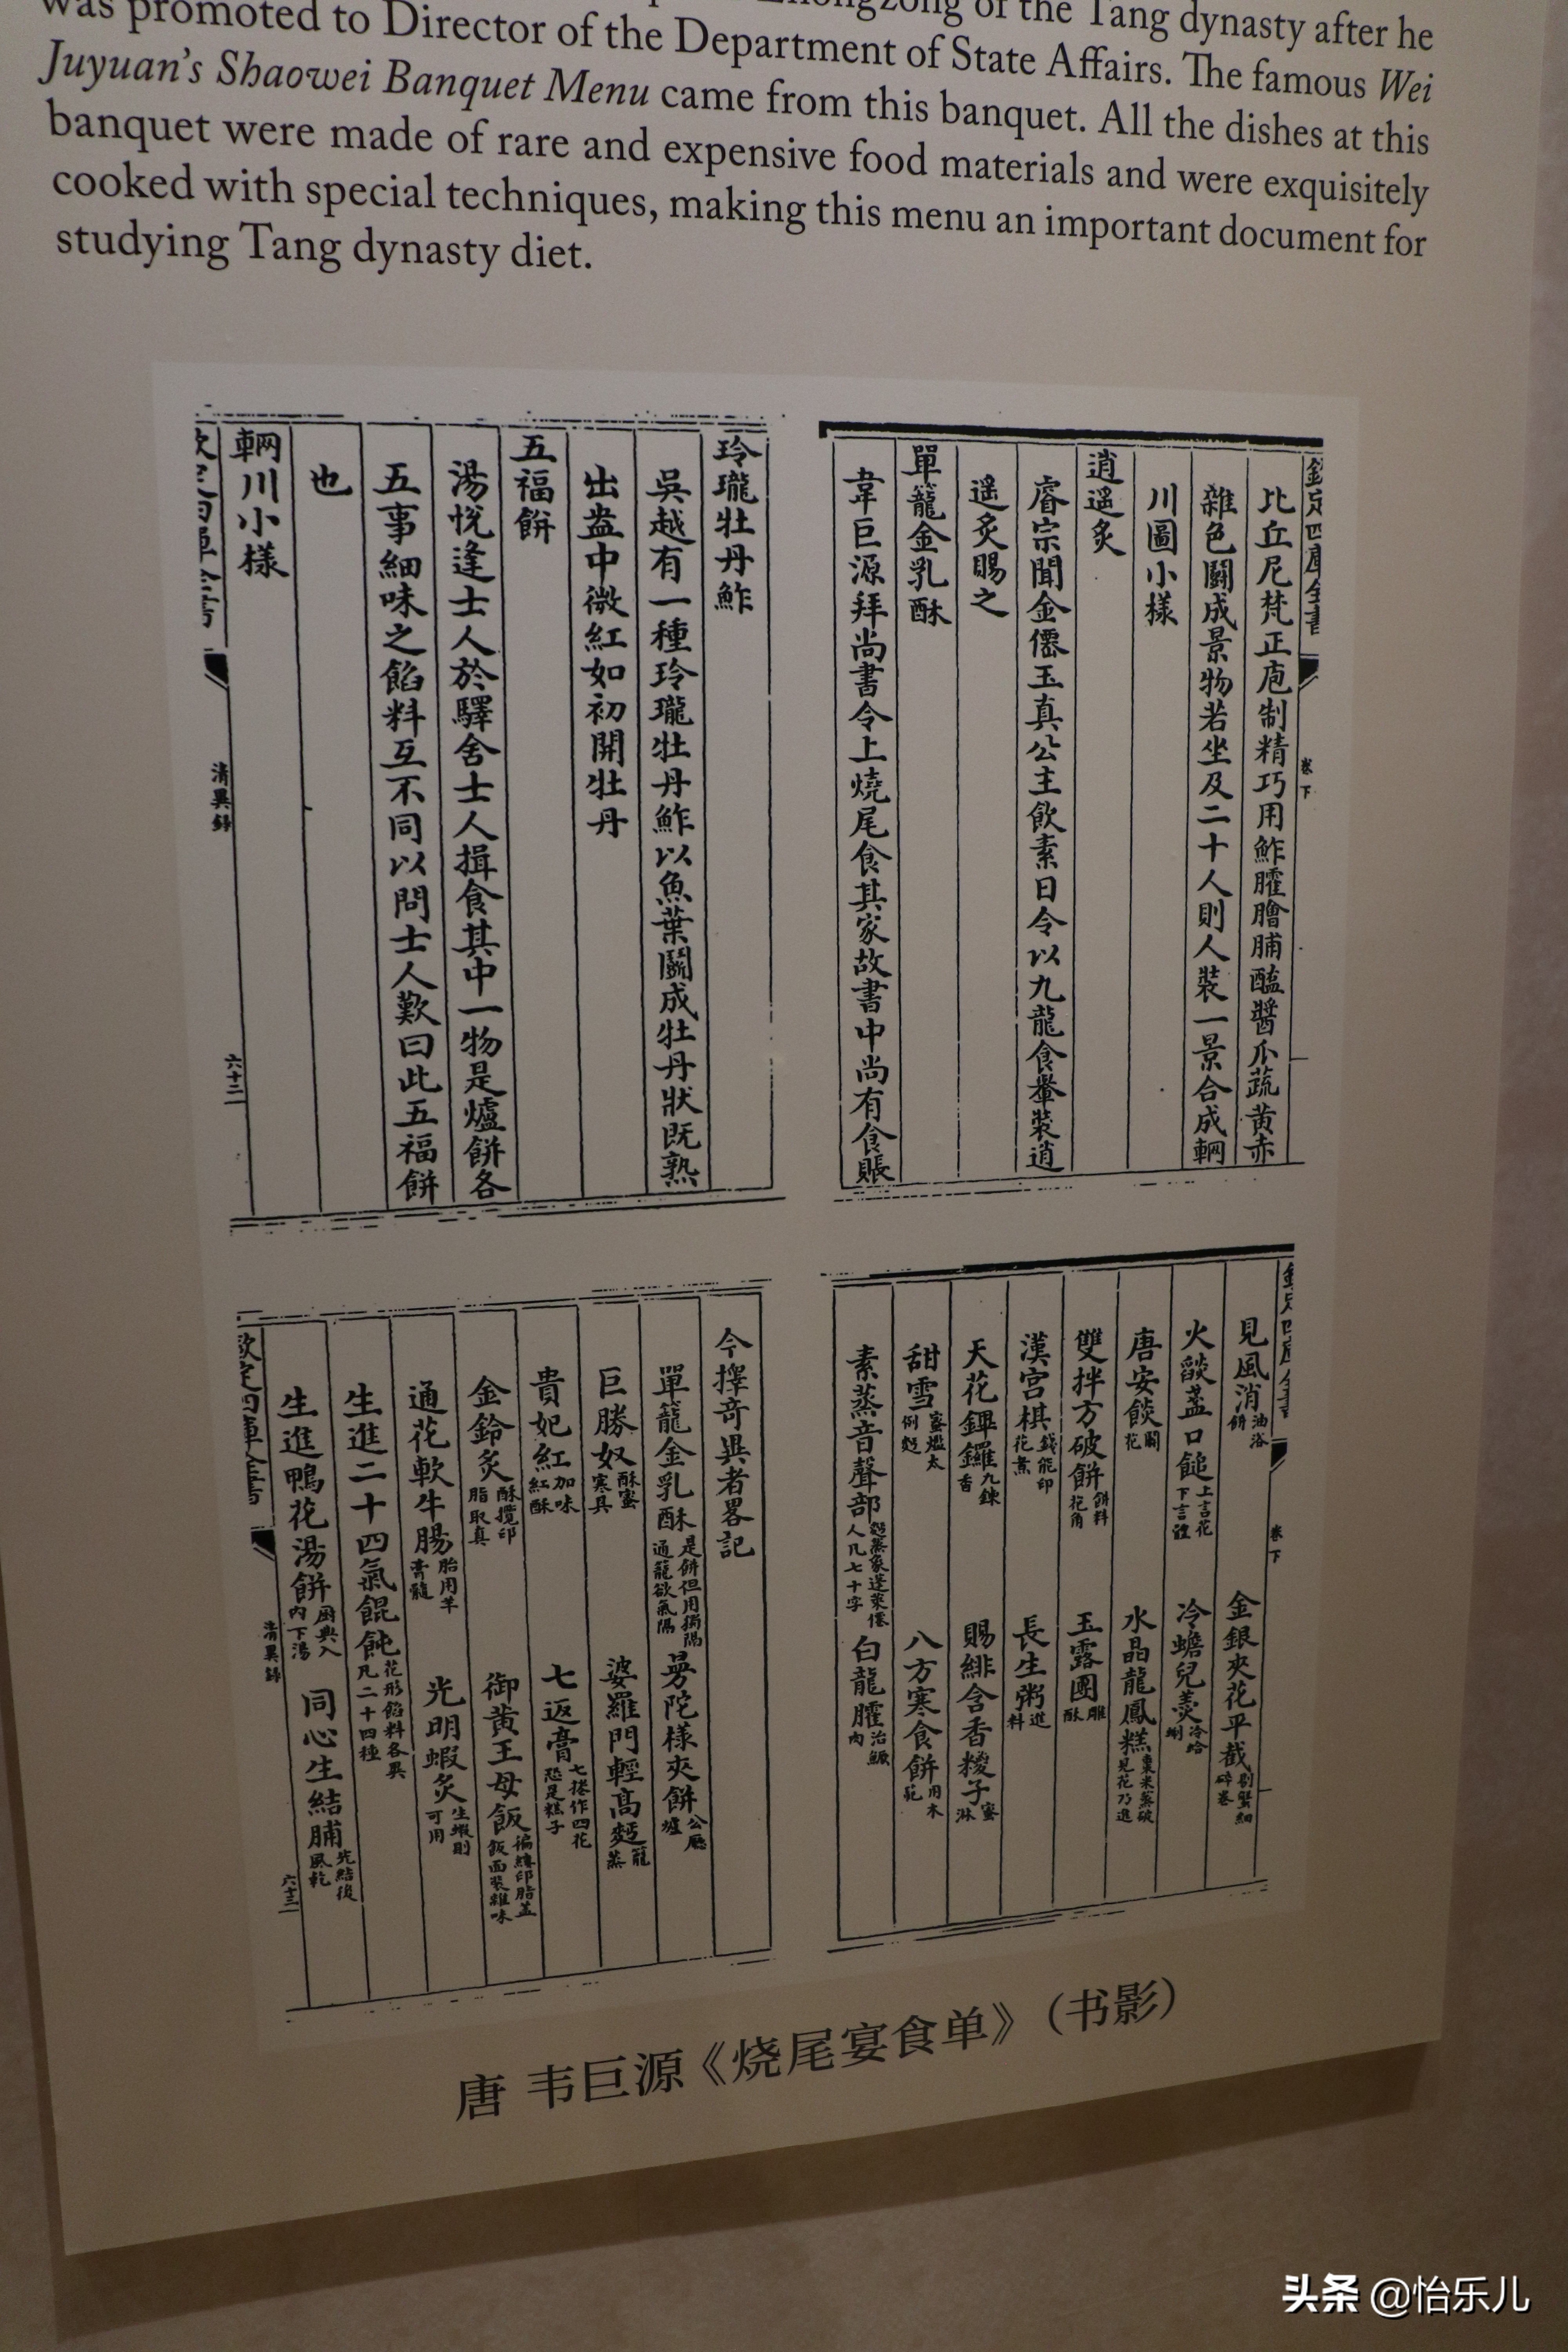 was promoted to Director of the Department of State Affairs. The famous Wei
Zhongzong of the Tang dynasty after he
Juyuan's Shaowei Banquet Menu came from this banquet. All the dishes at this
banquet were made of rare and expensive food materials and were exquisitely
cooked with special techniques, making this menu an important document for
studying Tang dynasty diet.
玲瓏牡丹鮓
吳越有一種玲瓏牡丹鮓以魚葉鬭成牡丹狀既熟
出盎中微紅如初開牡丹
五福餅
湯悅逢士人於驛舍士人揖食其中一物是爐餅各
五事細味之餡料互不同以問士人歎曰此五福餅
也
輞川小樣
清異錄
六十二
欽定四庫全書
卷下
比丘尼梵正庖制精巧用鮓臛膾脯醢醬瓜蔬黄赤
雜色鬭成景物若坐及二十人則人裝一景合成輞
川圖小樣
逍遥炙
睿宗聞金僊玉真公主飲素日令以九龍食轝裝逍
遥炙賜之
單籠金乳酥
韋巨源拜尚書令上燒尾食其家故書中尚有食賬
今擇竒異者畧記
單籠金乳酥是餅但用獨隔通籠欲氣隔 曼陀樣夾餅公㕔爐
巨勝奴酥蜜寒具 婆羅門輕髙麫籠蒸
貴妃紅加味紅酥 七返膏七捲作四花恐是糕子
金鈴炙酥攪印脂取真 御黄王母飯徧縷印脂蓋飯面裝雜味
通花軟牛腸胎用羊膏髓 光明蝦炙生蝦則可用
生進二十四氣餛飩花形餡料各異凡二十四種
生進鴨花湯餅厨典入内下湯 同心生結脯先結後風乾
清異錄
六十三
卷下
見風消油浴餅 金銀夾花平截剔蟹細碎卷
火燄盞口䭔上言花下言體 冷蟾兒羹冷蛤蜊
唐安餤鬭花 水晶龍鳳糕棗米蒸破見花乃進
雙拌方破餅餅料花角 玉露團雕酥
漢宫棋錢能印花煮 長生粥進料
天花饆饠九鍊香 賜緋含香糭子蜜淋
甜雪蜜爁太例麫 八方寒食餅用木範
素蒸音聲部麫蒸象蓬萊僊人凡七十字 白龍臛治鱖肉
唐 韦巨源《烧尾宴食单》（书影）
头条 @怡乐儿